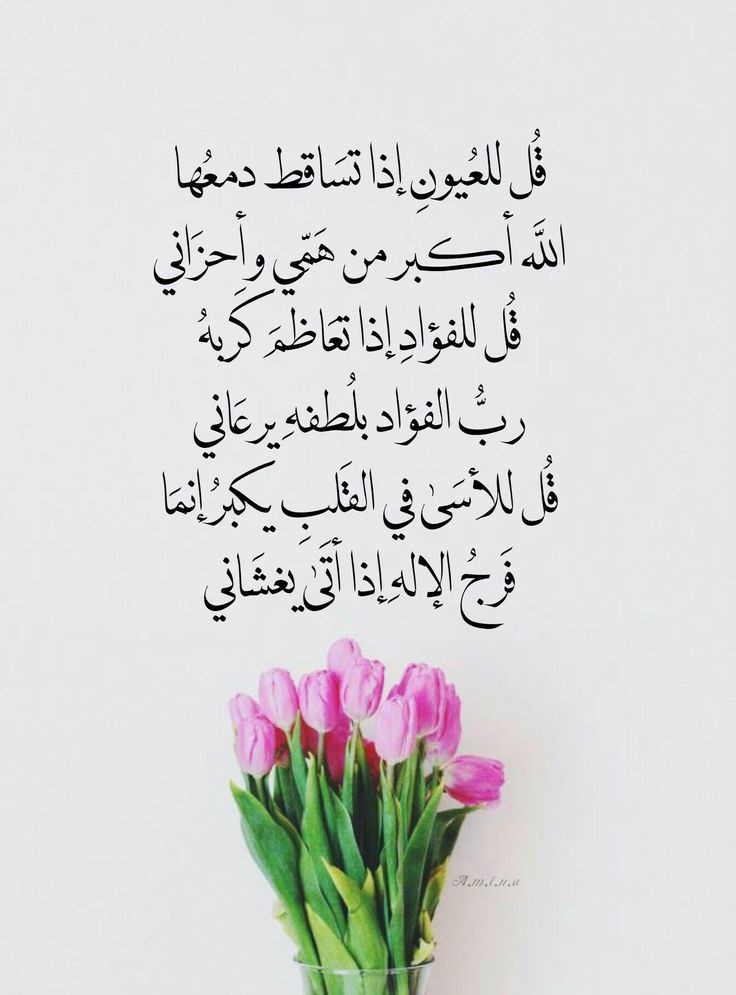 قُل للعُيونِ إذا تسَاقط دمعُها
اللَّه أكبر من هَمّي وأحزَاني
قُل للفؤادِ إذا تعَاظمَ كَربهُ
ربُّ الفؤاد بلُطفهِ يرعَاني
قُل للأسَىٰ في القَلبِ يكبرُ إنمَا
فَرجُ الإلهِ إذا أتَىٰ يغشَاني
A.m.i.n.a